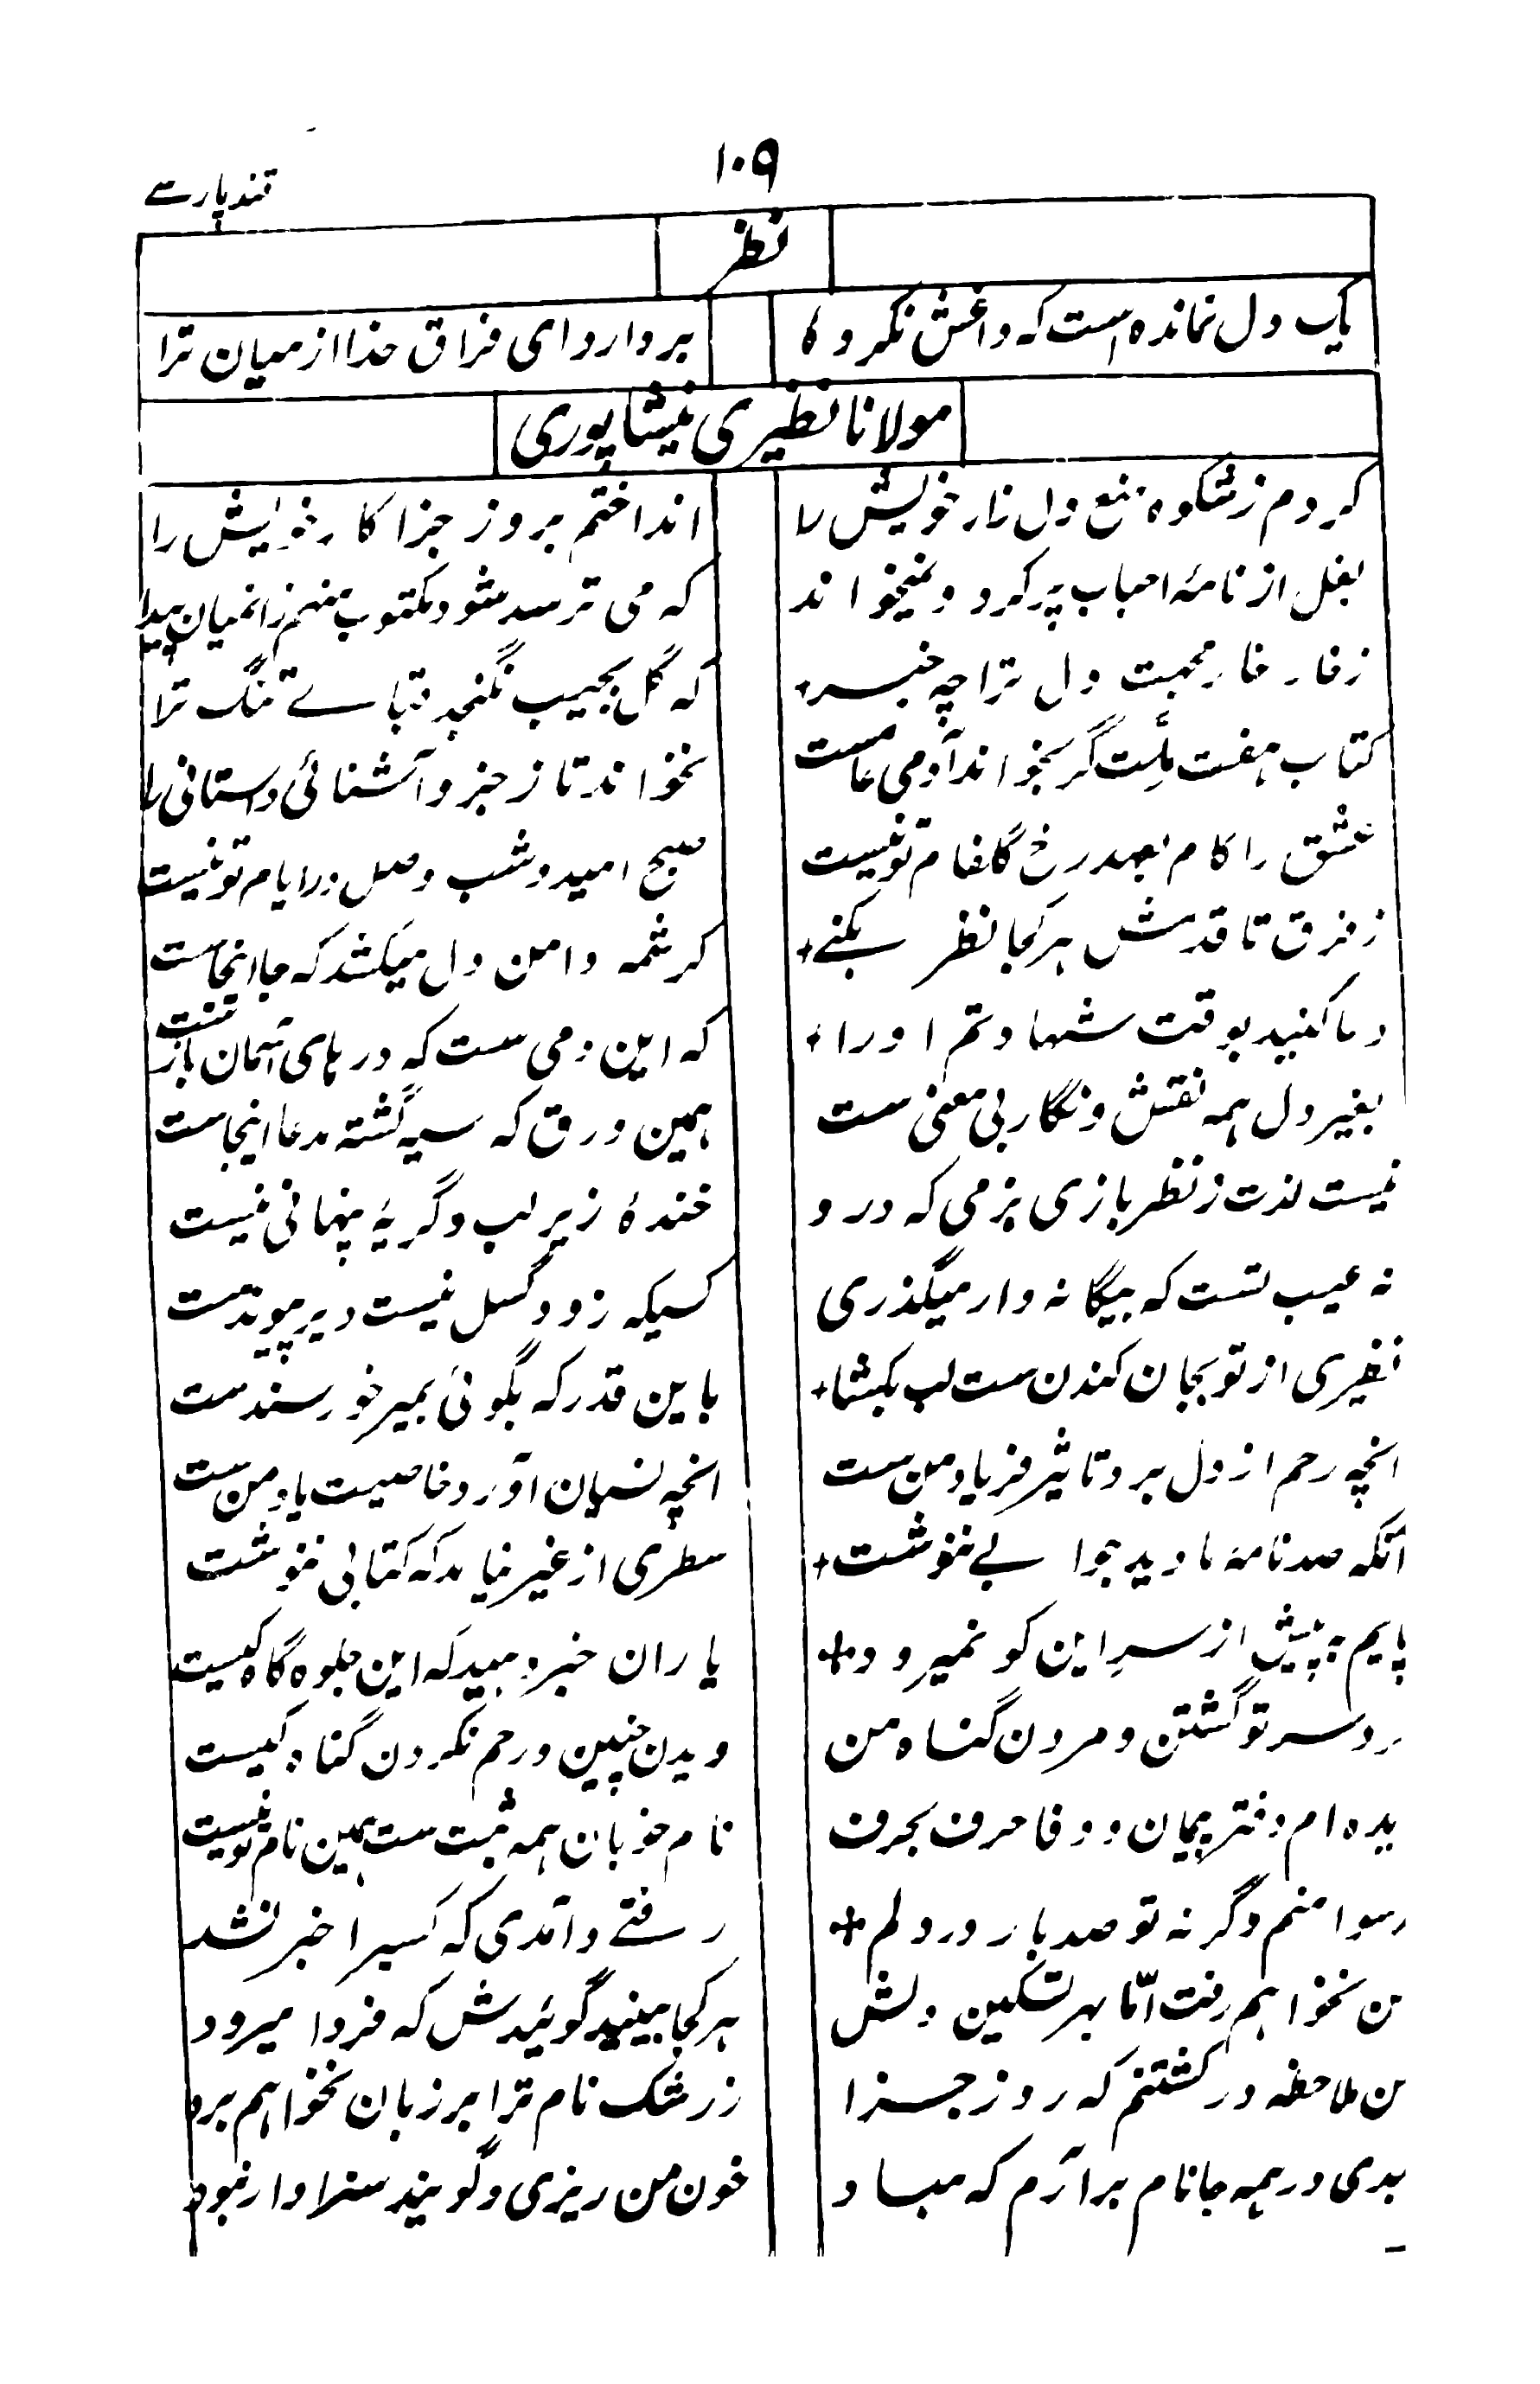 ۱۰۹
قند پارسے
نظر
یک دل نمانده است که داغش نکرده
بردارد ای فراق خدا از میان ترا
مولانا نظیری نیشاپوری
کردم ز شکوه منع دل زار خویش را
انداختم بروز جزا کار خویش را
بغل از نامۀ احباب پر کرد و نمیخواند
که می ترسد شود مکتوب منهم زانمیان پیدا
ز خار خار محبت دل ترا چه خبر
که گل بجیب نگنجد قبائے تنگ ترا
کتاب هفت ملّت گر بخواند آدمی عامست
نخواند تا ز جزو آشنائی داستانی را
عشق را کام بعهد رخ گلفام تو نیست
صبح امید و شب وصل در ایام تو نیست
ز فرق تا قدمش هر کجا نظر بکنے
کرشمه دامن دل میکشد که جا اینجاست
دعا کنید بوقت شهادتم او را
که این دمی ست که درهای آسمان بازست
بغیر دل همه نقش و نگار بی معنی ست
همین ورق که سیه گشته مدعا اینجاست
نیست لذت ز نظر بازی بزمی که درو
خندۀ زیر لب و گریۀ پنهانی نیست
نه عیب تست که بیگانه وار میگذری
کسیکه زود گسل نیست دیر پیوندست
نظیری از تو بجان کندن ست لب بکشا
باین قدر که بگوئی بمیر خورسندست
انچه رحم از دل برد تاثیر فریاد من ست
انچه نسیان آورد خاصیت یاد من ست
آنکه صد نامۀ ما دید جوابے ننوشت
سطری از غیر نیامد که کتابی ننوشت
پایم به پیش از سر این کو نمیرود
یاران خبر دهید که این جلوه گاه کیست
رد سر تو گشتن و مردن گناه من
دیدن چنین و رحم نکردن گناه کیست
یده ام دفتر پیمان و وفا حرف بحرف
نام خوبان همه ثبت ست همین نام تو نیست
رسوا منم وگرنه تو صد بار در دلم
رفتے و آمدی که کسیرا خبر نشد
من نخواهم رفت امّا بهر تسکین دلش
هر کجا بینید گوئیدش که فردا میرود
من ملاحظه در کشتنم که روز جزا
ز رشک نام ترا بر زبان نخواهم برد
بدی در همه جا نام بر آرم که مباد
خون من ریزی و گویند سزاوار نبود